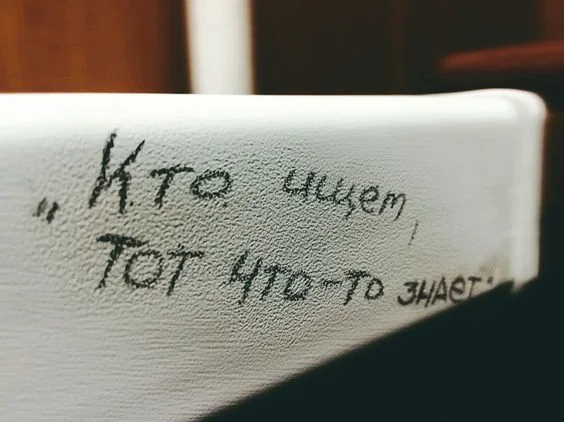 „Кто ищет,
Тот что-то знает"